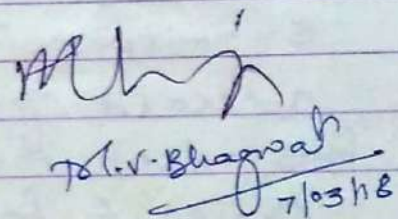 M.V. Bhagwat
7/03/18